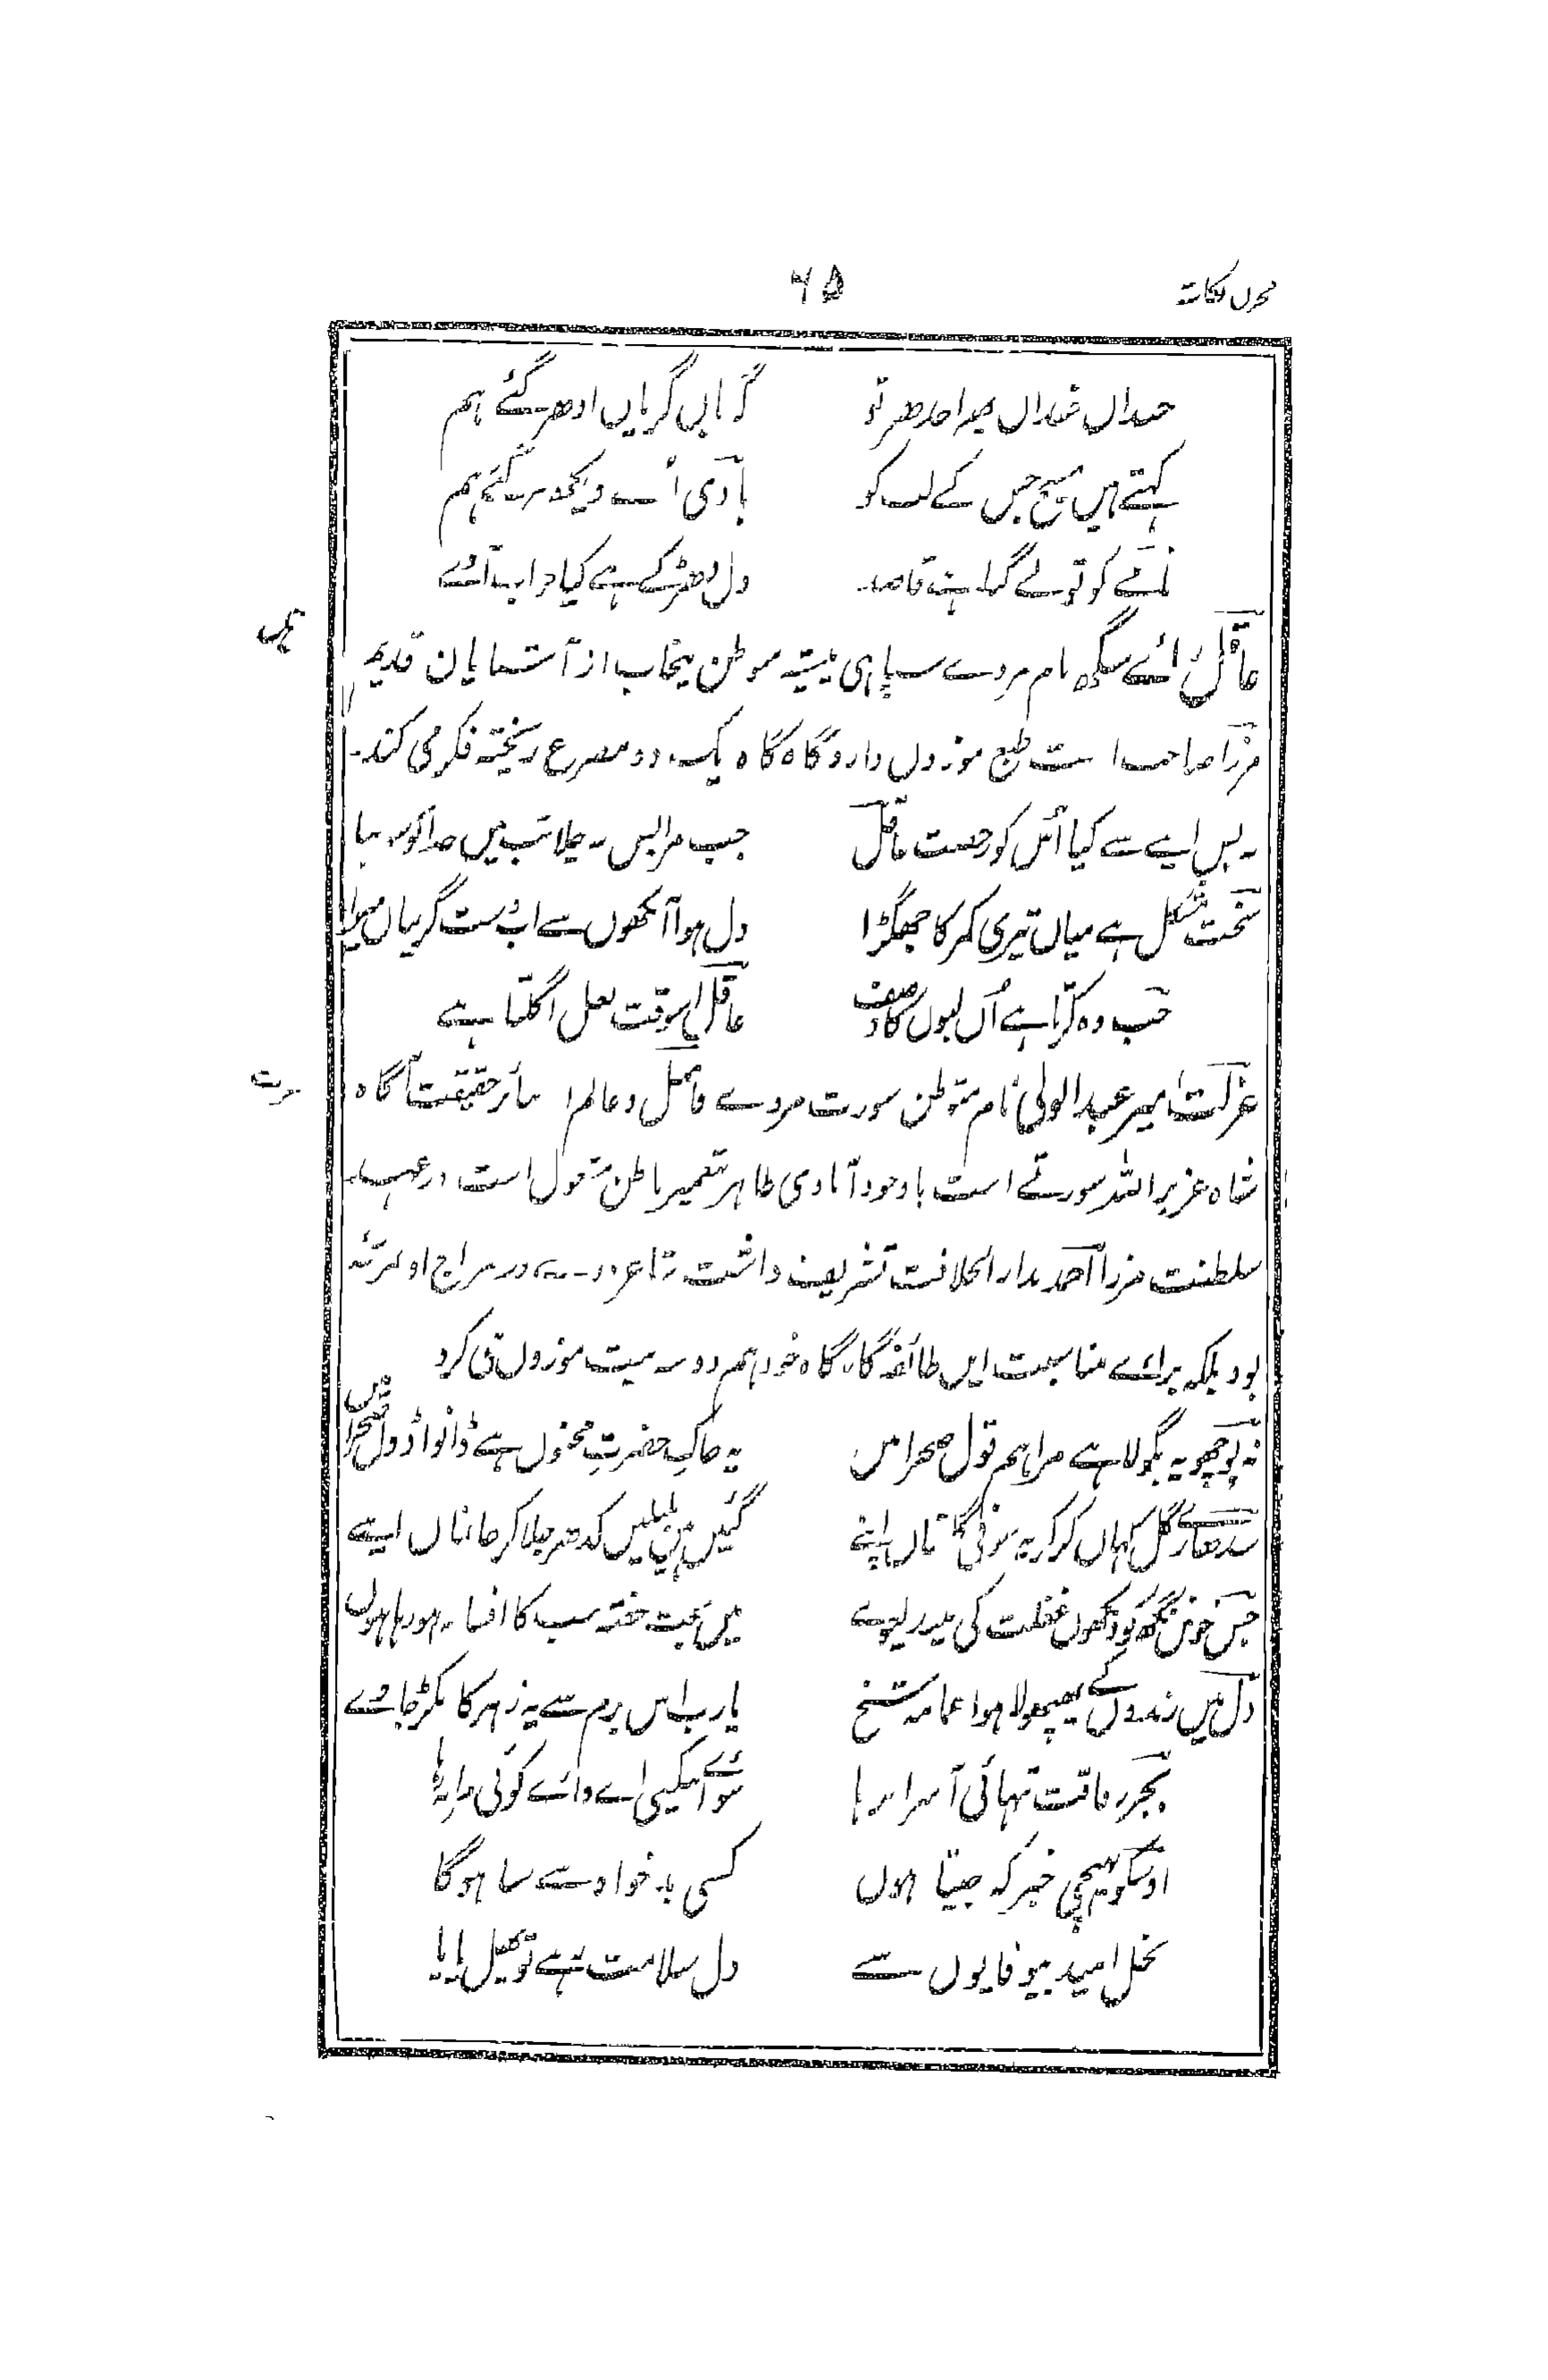 مخزن نکات
۶۵
خنداں خنداں پھرا جدھر تو گریاں گریاں اودھر گئے ہم
کہتے ہیں مسیح جس کے لب کو اُسے دیکھ مر گئے ہم
نامے کو تو لے گیا ہے قاصد دل دھڑکے ہے کیا جواب آئے
عاقل رائے سنگھ نام مردے سپاہی پیشہ متوطن پنجاب از آشنایان قدیم
مرزا صاحب است طبع موزوں دارد گاہ گاہ یک دو مصرع ریختہ فکر می کند
بس اپنے سے کیا اُس کو رخصت عاقل جب مرا بس نہ چلا تب میں
سخت مشکل ہے میاں تیری کمر کا جھگڑا دل ہوا آنکھوں سے اب دست گریباں میرا
جب وہ کرتا ہے اُن لبوں کا وصف عاقل اسوقت لعل اگلتا ہے
عزلت
عزلت میر عبدالولی نام متوطن سورت مردے فاضل و عالم حقیقت آگاہ
شاہ عزیز اللہ سورتے است باوجود آبادی ظاہر تعمیر باطن مشغول است در عہد
سلطنت مرزا احمد بدار الخلافت تشریف داشت در مزاج او مرتبہ
بود بلکہ برائے مناسبت ایں طائفہ گاہ گاہ خود ہم دو سہ بیت موزوں می کرد
نہ پوچھو یہ بگولا ہے مرا ہم قول صحرا میں یہ خاکِ حضرتِ مجنوں ہے ڈانواڈول صحرا میں
سدھارے گل کہاں کر کر یہ سونی اپنے گئیں بلبلیں کدھر جلا کر خانماں اپنے
جس خوش نگہ کو دیکھوں غفلت کی نیند لیوے میں بخت خفتہ سب کا افسانہ ہو رہا ہوں
دل میں رندوں کے پھپھولا ہوا عمامہ شیخ یارب اس بزم سے یہ زہر کا مکڑ جاوے
بجز رفاقت تنہائی آسرا نہ رہا سوائے بیکسی اے وائے کوئی مرا نہ رہا
اوسکو پہنچی خبر کہ جیتا ہوں کسی بدخواہ سے سنا ہوگا
نخل امید بیوفایوں سے دل سلامت رہے تو پھل پایا